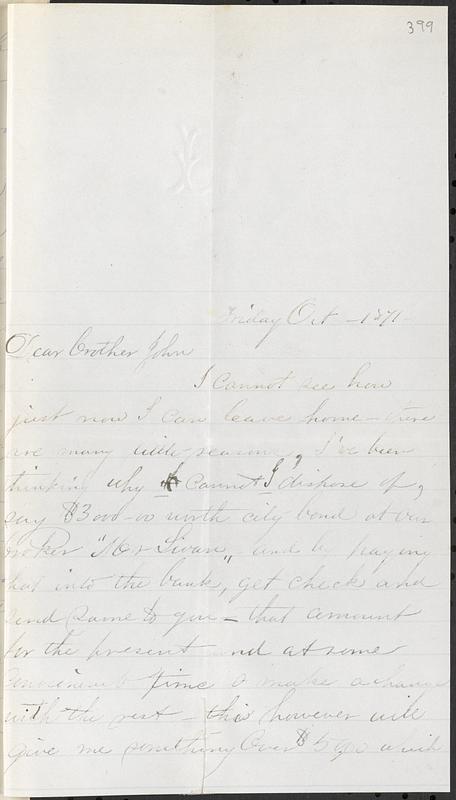 399
Friday Oct - 1871
Dear Brother John
I cannot see how
just now I can leave home - there
are many little reasons, I've been
thinking why cannot I dispose of,
say $3000-00 worth city bond at our
broker "Mr Swan" and by paying
that into the bank, get check and
send same to you - that amount
for the present and at some
convenient time to make a change
with the rest - this however will
give me something over $5 which